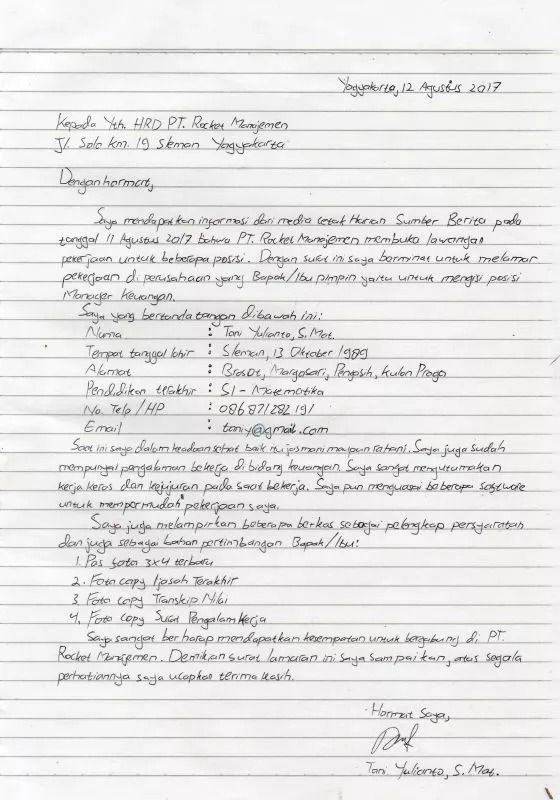 Yogyakarta, 12 Agustus 2017
Kepada Yth. HRD PT. Rocket Manajemen
Jl. Solo Km. 19 Sleman Yogyakarta
Dengan hormat,
Saya mendapatkan informasi dari media cetak Harian Sumber Berita pada
tanggal 11 Agustus 2017 bahwa PT. Rocket Manajemen membuka lawangan
pekerjaan untuk beberapa posisi. Dengan surat ini saya berminat untuk melamar
pekerjaan di perusahaan yang Bapak/Ibu pimpin yaitu untuk mengisi posisi
Manager Keuangan.
Saya yang bertanda tangan dibawah ini:
Nama : Toni Yulianto, S. Mat.
Tempat tanggal lahir : Sleman, 13 Oktober 1989
Alamat : Brosot, Margosari, Pengasih, Kulon Progo
Pendidikan terakhir : S1 - Matematika
No. Telp/HP : 086 871 282 191
Email : toniy@gmail.com
Saat ini saya dalam keadaan sehat baik itu jasmani maupun rohani. Saya juga sudah
mempunyai pengalaman bekerja di bidang keuangan. Saya sangat mengutamakan
kerja keras dan kejujuran pada saat bekerja. Saya pun menguasai beberapa software
untuk mempermudah pekerjaan saya.
Saya juga melampirkan beberapa berkas sebagai pelengkap persyaratan
dan juga sebagai bahan pertimbangan Bapak/Ibu:
1. Pas foto 3x4 terbaru
2. Foto copy Ijasah Terakhir
3. Foto copy Transkip Nilai
4. Foto copy Surat Pengalam Kerja
Saya sangat berharap mendapatkan kesempatan untuk bergabung di PT.
Rocket Manajemen. Demikian surat lamaran ini saya sampaikan, atas segala
perhatiannya saya ucapkan terima kasih.
Hormat Saya,
Toni Yulianto, S. Mat.